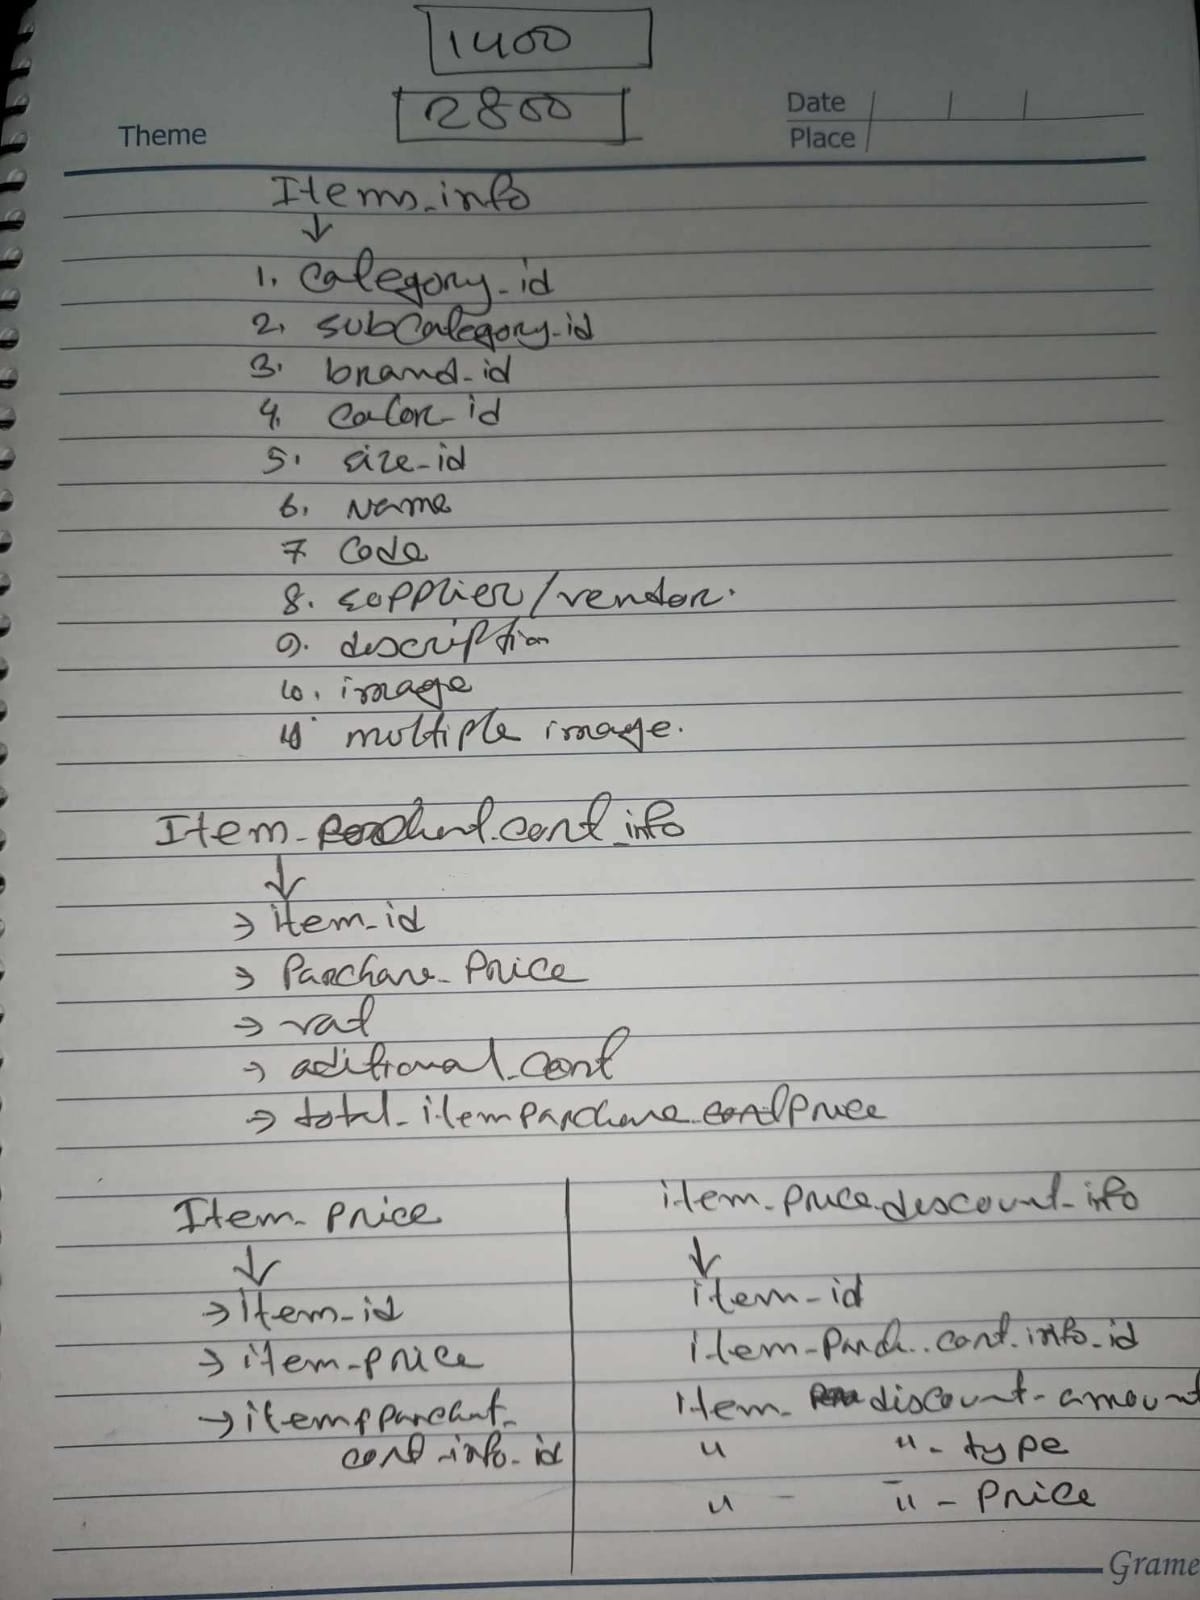 1400
2800
Date
Place
Theme
Items_info
1. Category_id
2. subCategory_id
3. brand_id
4. color_id
5. size_id
6. Name
7 Code
8. supplier/vendor.
9. description
10. image
11. multiple image.
Item_ cost_info
→ item_id
→ Parchase_Price
→ vat
→ aditional_cost
→ total_item parchase_cost price
Item_price
→ item_id
→ item_price
→ item parchast_
cost_info_id
item_price_discount_info
item_id
item_Parch..cost.info_id
Item_ discount_amount
" "_type
" - "_Price
Grame